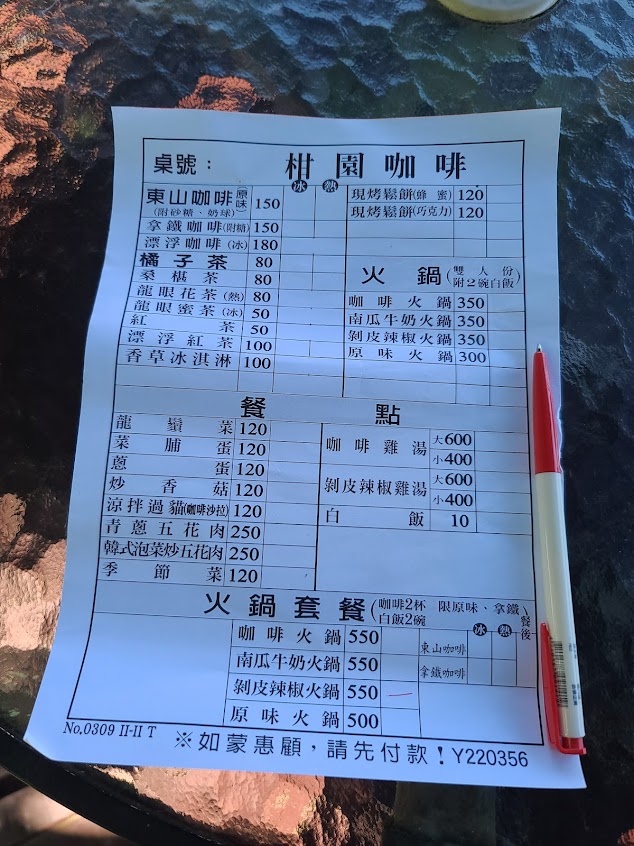 桌號： 柑園咖啡
冰 熱
東山咖啡 原味 150
(附砂糖、奶球)
拿鐵咖啡(附糖) 150
漂浮咖啡(冰) 180
橘子茶 80
桑椹茶 80
龍眼花茶(熱) 80
龍眼蜜茶(冰) 50
紅茶 50
漂浮紅茶 100
香草冰淇淋 100
現烤鬆餅(蜂蜜) 120
現烤鬆餅(巧克力) 120
火鍋(雙人份 附2碗白飯)
咖啡火鍋 350
南瓜牛奶火鍋 350
剝皮辣椒火鍋 350
原味火鍋 300
餐點
龍鬚菜 120
菜脯蛋 120
蔥蛋 120
炒香菇 120
涼拌過貓(咖啡沙拉) 120
青蔥五花肉 250
韓式泡菜炒五花肉 250
季節菜 120
咖啡雞湯 大600
小400
剝皮辣椒雞湯 大600
小400
白飯 10
火鍋套餐(咖啡2杯 限原味、拿鐵 白飯2碗)
咖啡火鍋 550
南瓜牛奶火鍋 550
剝皮辣椒火鍋 550
原味火鍋 500
冰 熱 餐後
東山咖啡
拿鐵咖啡
No,0309 II-II T
※如蒙惠顧，請先付款！Y220356